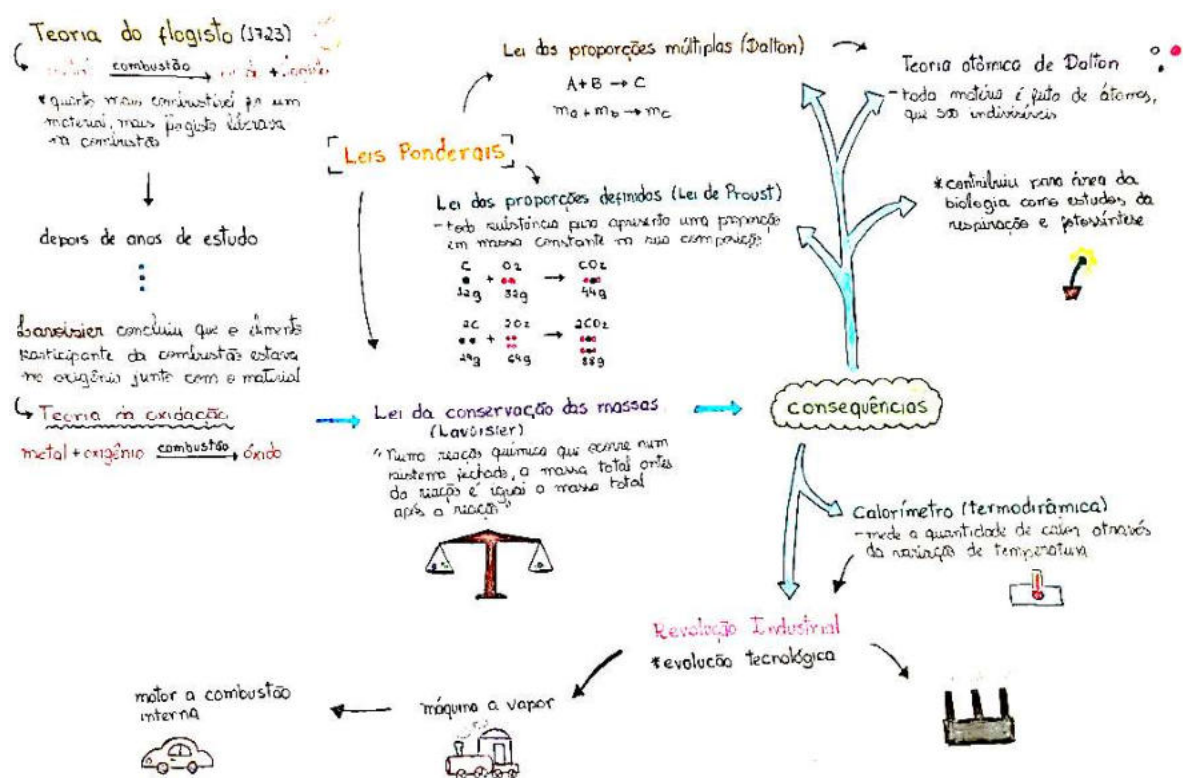 Teoria do flogisto (1723)
combustão
*quanto mais combustível for um
material, mais flogisto liberava
na combustão
depois de anos de estudo
Lavoisier concluiu que o elemento
participante da combustão estava
no oxigênio junto com o material
Teoria da oxidação
metal + oxigênio combustão óxido
[Leis Ponderais]
Lei das proporções múltiplas (Dalton)
A + B → C
ma + mb → mc
Lei das proporções definidas (Lei de Proust)
- toda substância pura apresenta uma proporção
em massa constante na sua composição
C + O2 → CO2
12g 32g 44g
2C + 2O2 → 2CO2
24g 64g 88g
Lei da conservação das massas
(Lavoisier)
"Numa reação química que ocorre num
sistema fechado, a massa total antes
da reação é igual a massa total
após a reação"
Consequências
Teoria atômica de Dalton
- toda matéria é feita de átomos,
que são indivisíveis
*contribuiu para área da
biologia como estudos da
respiração e fotossíntese
Calorímetro (termodinâmica)
- mede a quantidade de calor através
da variação de temperatura
Revolução Industrial
*evolucão tecnológica
máquina a vapor
motor a combustão
interna